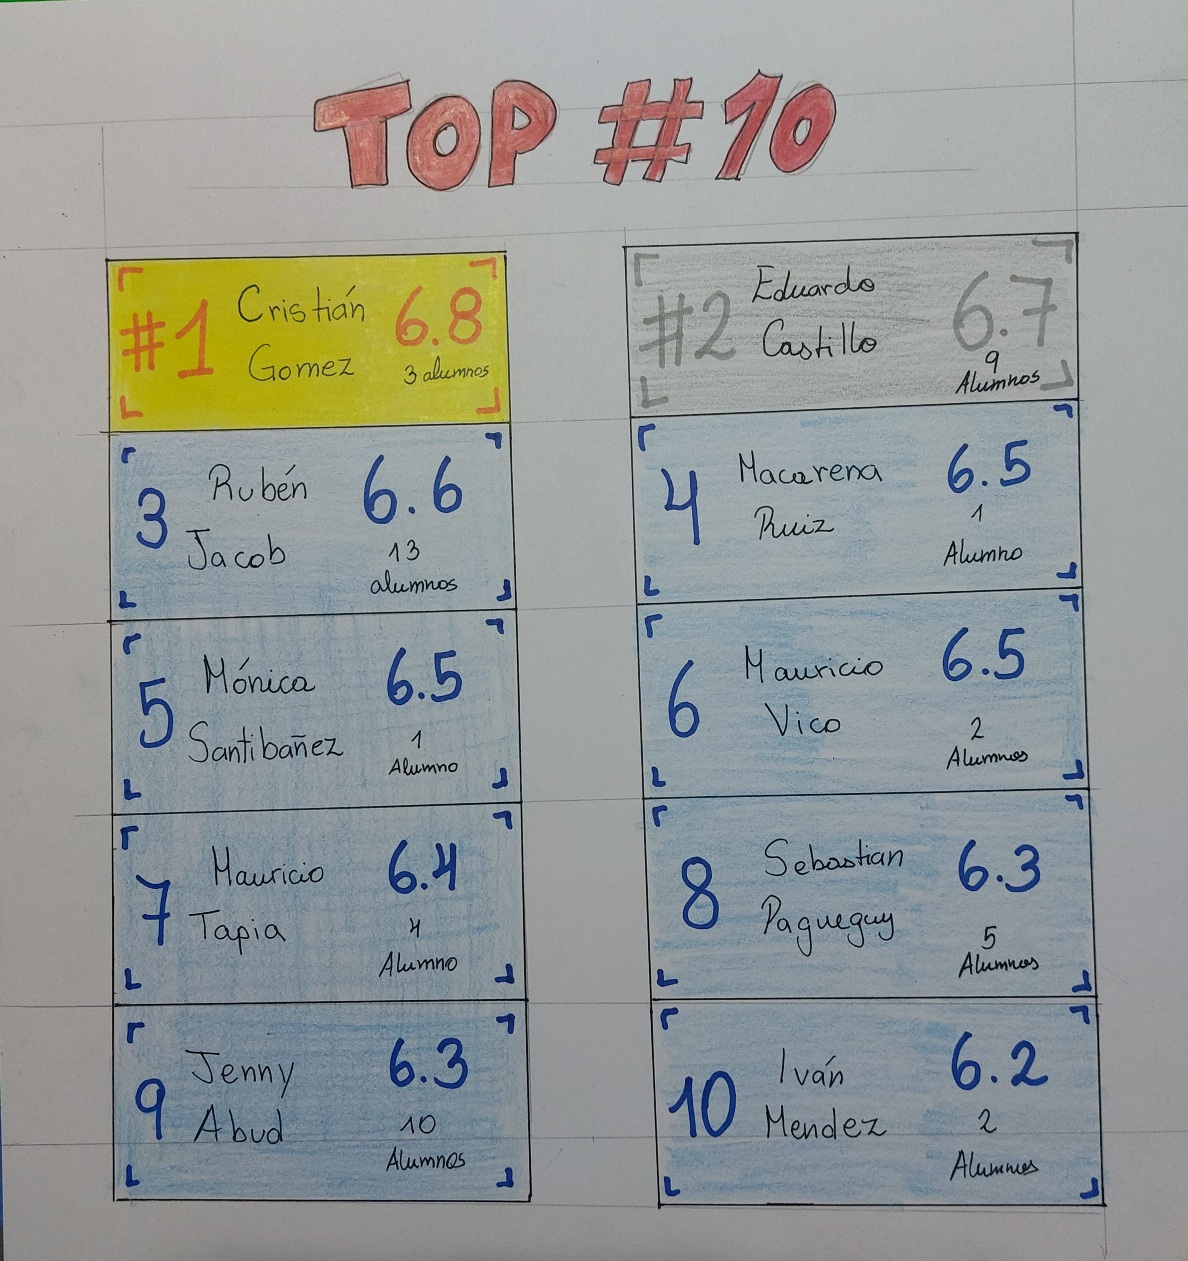 TOP #10
#1 Cristián 6.8
Gomez 3 alumnos
#2 Eduardo 6.7
Castillo 9
Alumnos
3 Rubén 6.6
Jacob 13
alumnos
4 Macarena 6.5
Ruiz 1
Alumno
5 Mónica 6.5
Santibañez 1
Alumno
6 Mauricio 6.5
Vico 2
Alumnos
7 Mauricio 6.4
Tapia 4
Alumno
8 Sebastian 6.3
Pagueguy 5
Alumnos
9 Jenny 6.3
Abud 10
Alumnos
10 Iván 6.2
Mendez 2
Alumnos